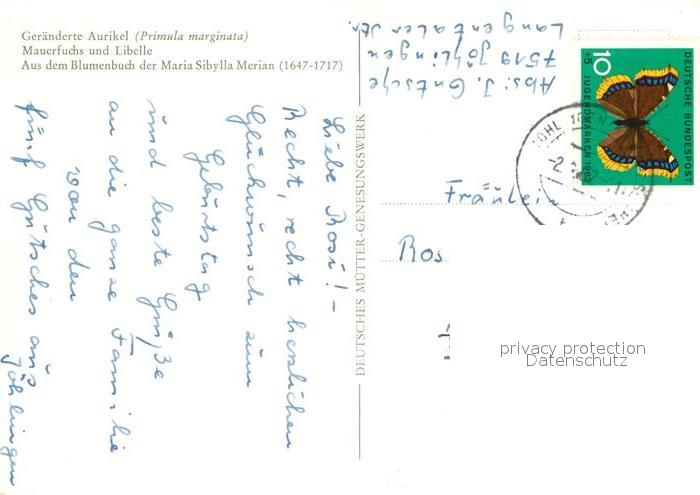 Geränderte Aurikel (Primula marginata)
Mauerfuchs und Libelle
Aus dem Blumenbuch der Maria Sibylla Merian (1647-1717)
Liebe Rosi! –
Recht, recht herzlichen
Glückwunsch zum
Geburtstag
und beste Grüße
an die ganze Familie
von den
fünf Gutsches aus
Jöhlingen
DEUTSCHES MÜTTER-GENESUNGSWERK
Abs: J. Gutsche
7519 Jöhlingen
Langentaler Str.
10
+5 JUGENDMARKEN 1962
DEUTSCHE BUNDESPOST
-2.
Fräulein
Ros
privacy protection
Datenschutz